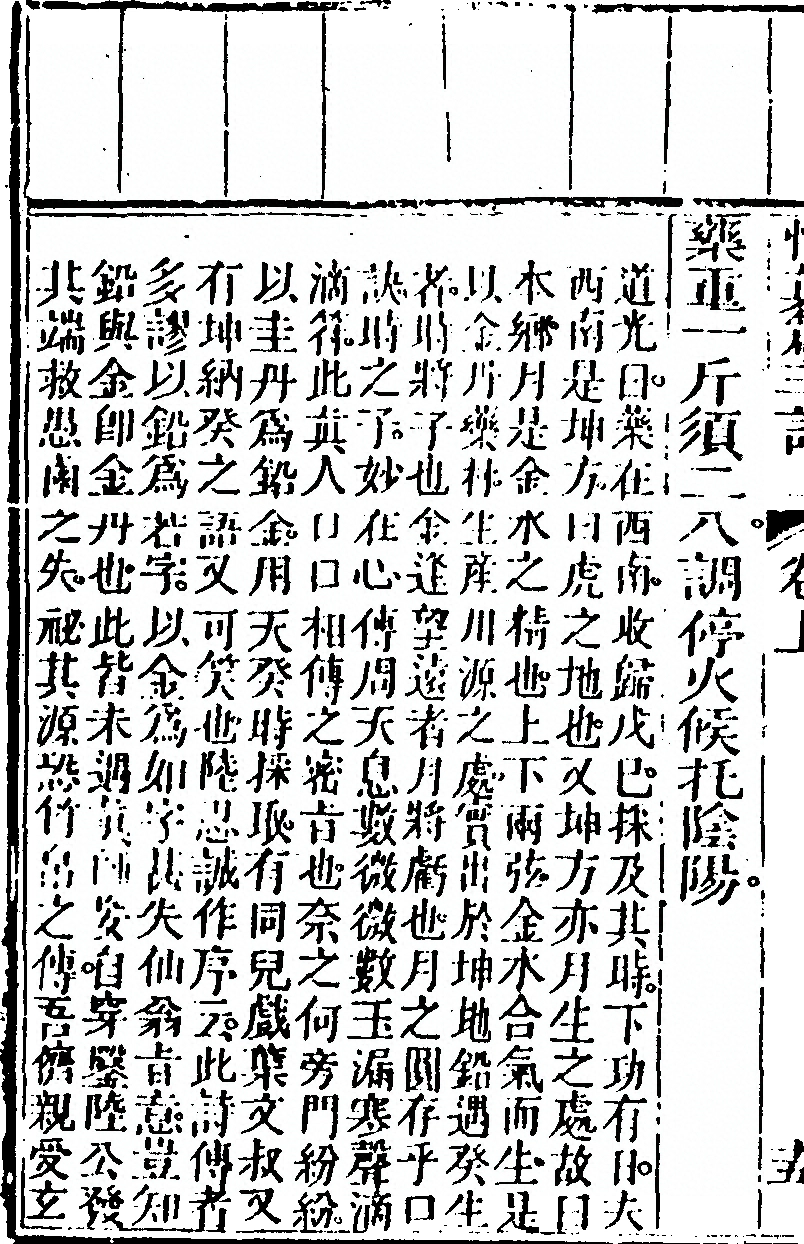 悟真篇三註 卷上 五
藥重一斤須二八。調停火候托陰陽。
道光曰。藥在西南。收歸戊巳。採及其時。下功有日。夫
西南是坤方。曰虎之地也。又坤方亦月生之處。故曰
本鄉。月是金水之精也。上下兩弦。金水合氣而生。是
以金丹藥材。生產川源之處。實出於坤地。鉛遇癸生
者。時將子也。金逢望遠者。月將虧也。月之圓存乎口
訣。時之子。妙在心傳。周天息數微微數。玉漏寒聲滴
滴符。此真人口口相傳之密旨也。奈之何旁門紛紛
以圭丹為鉛金。用天癸時採取。有同兒戲。葉文叔又
有坤納癸之語。又可笑也。陸思誠作序云。此詩傳者
多謬。以鉛為若字。以金為如字。甚失仙翁旨意。豈知
鉛與金即金丹也。此皆未遇真師。妄自穿鑿。陸公發
其端。救愚
之失。秘其源。恐
之傳。吾儕親愛玄